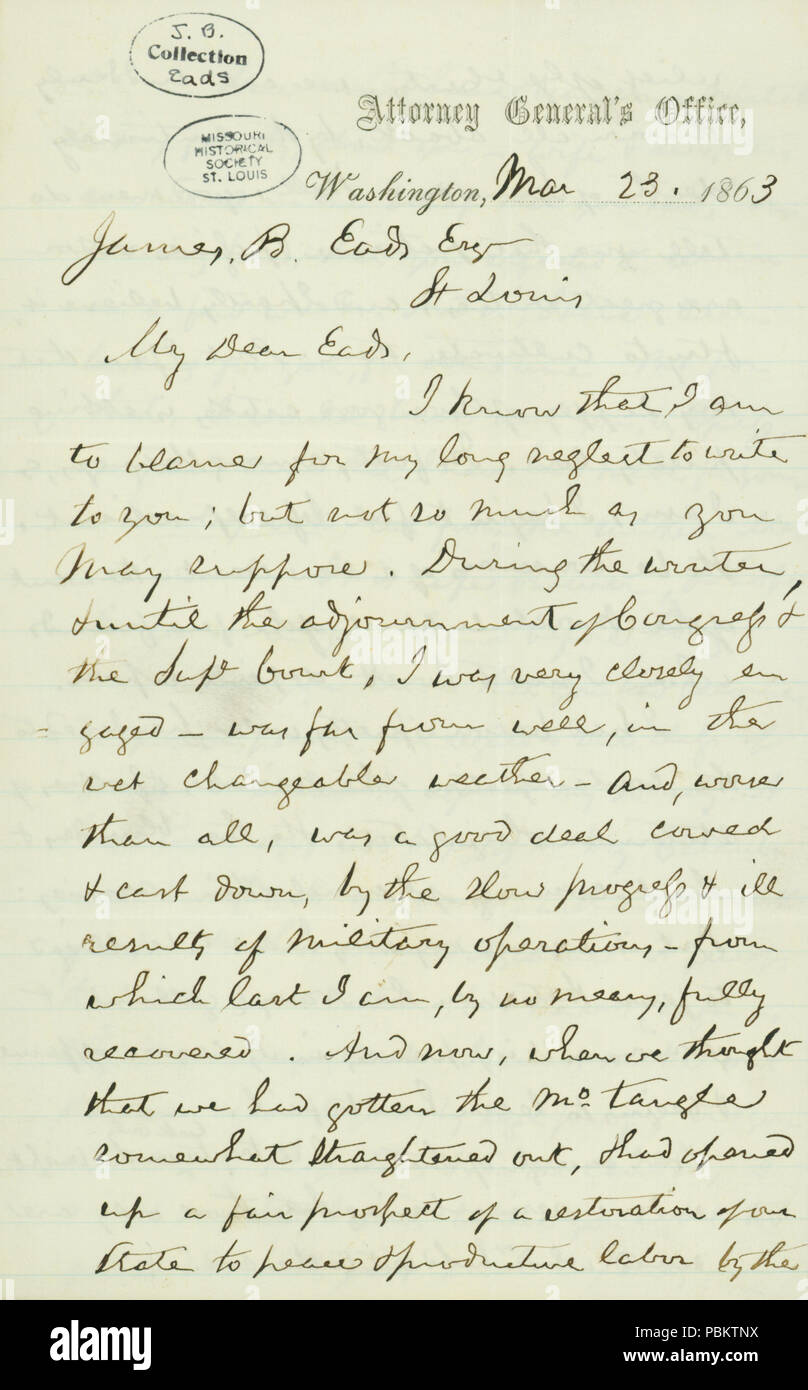 J. B.
Collection
Eads
MISSOURI
HISTORICAL
SOCIETY
ST. LOUIS
Attorney General's Office,
Washington, Mar 23. 1863
James. B. Eads Esqr
St Louis
My Dear Eads,
I know that I am
to blame for my long neglect to write
to you; but not so much as you
may suppose. During the winter,
& until the adjournment of Congress &
the Supe Court, I was very closely en
gaged – was far from well, in the
wet changeable weather – And, worse
than all, was a good deal cowed
& cast down, by the slow progress & ill
results of military operations – from
which last I am, by no means, fully
recovered. And now, when we thought
that we had gotten the Mo. tangle
somewhat straightened out, & had opened
up a fair prospect of a restoration of our
State to peace & productive labor by the
alamy
alamy
Image ID: PBKTNX
www.alamy.com